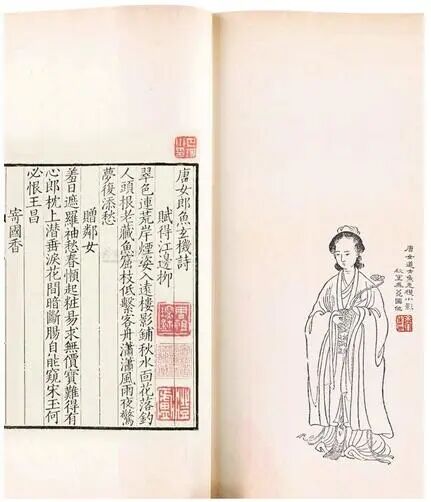 唐女道士魚元機小影
秋室
唐女郎魚玄機詩
賦得江邊柳
翠色連荒岸煙姿入遠樓影鋪秋水面花落釣
人頭根老藏魚窟枝低繫客舟瀟瀟風雨夜驚
夢復添愁
贈鄰女
羞日遮羅袖愁春懶起粧易求無價寶難得有
心郎枕上潛垂淚花間暗斷腸自能窺宋玉何
必恨王昌
寄國香